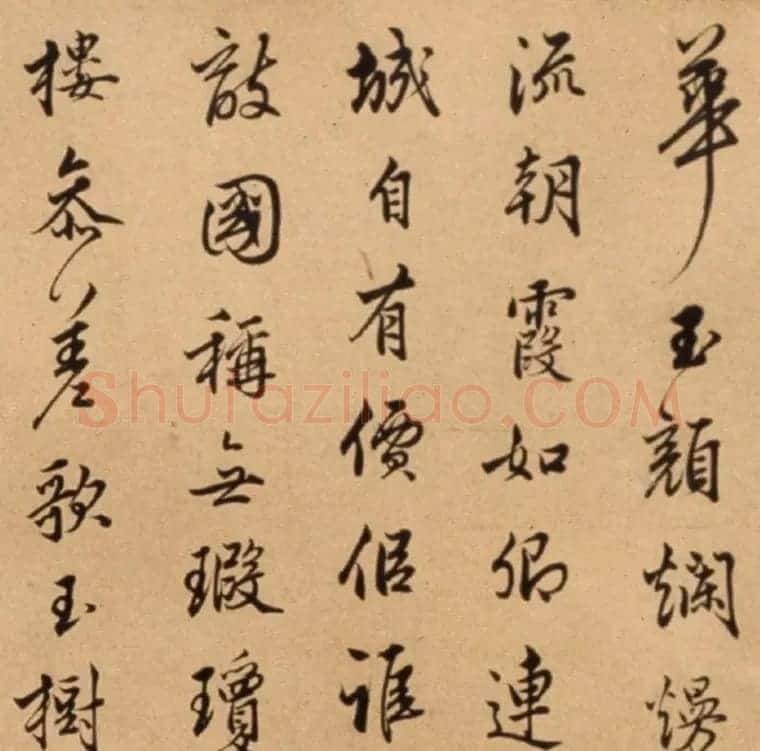 華玉顏爛熳
流朝霞如卿連
城自有價侶誰
敵國稱無瑕瓊
樓參差歌玉樹
Shufaziliao.COM